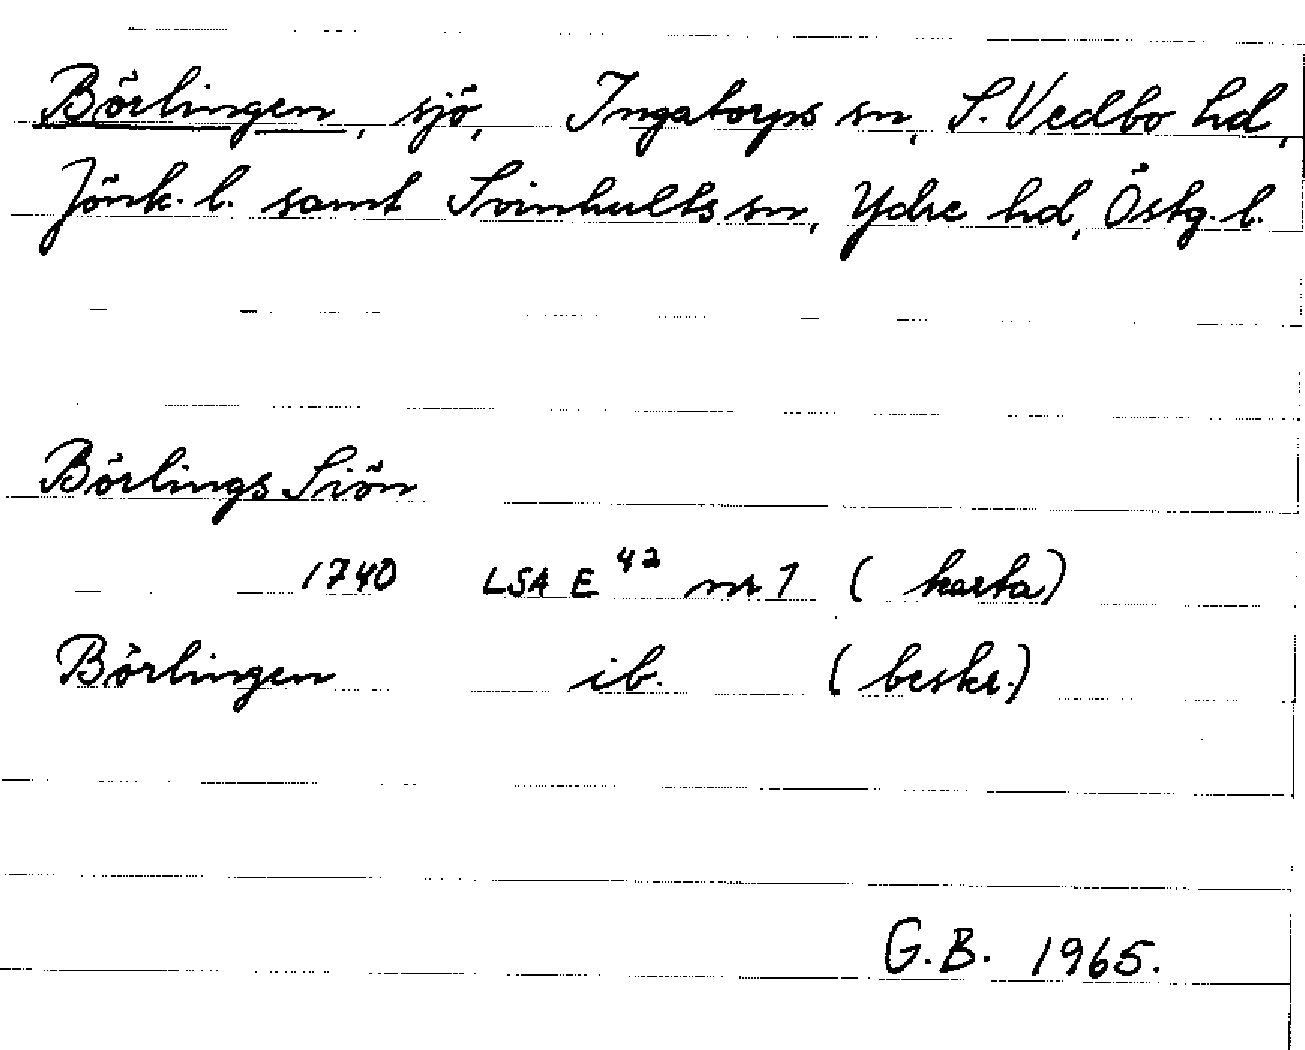 Börlingen, sjö, Ingatorps sn, S. Vedbo hd,
Jönk. l. samt Svinhults sn, Ydre hd, Östg. l.
Börlings Siön
1740 LSA E 42 nr 1 (karta)
Börlingen ib. (beskr.)
G.B. 1965.